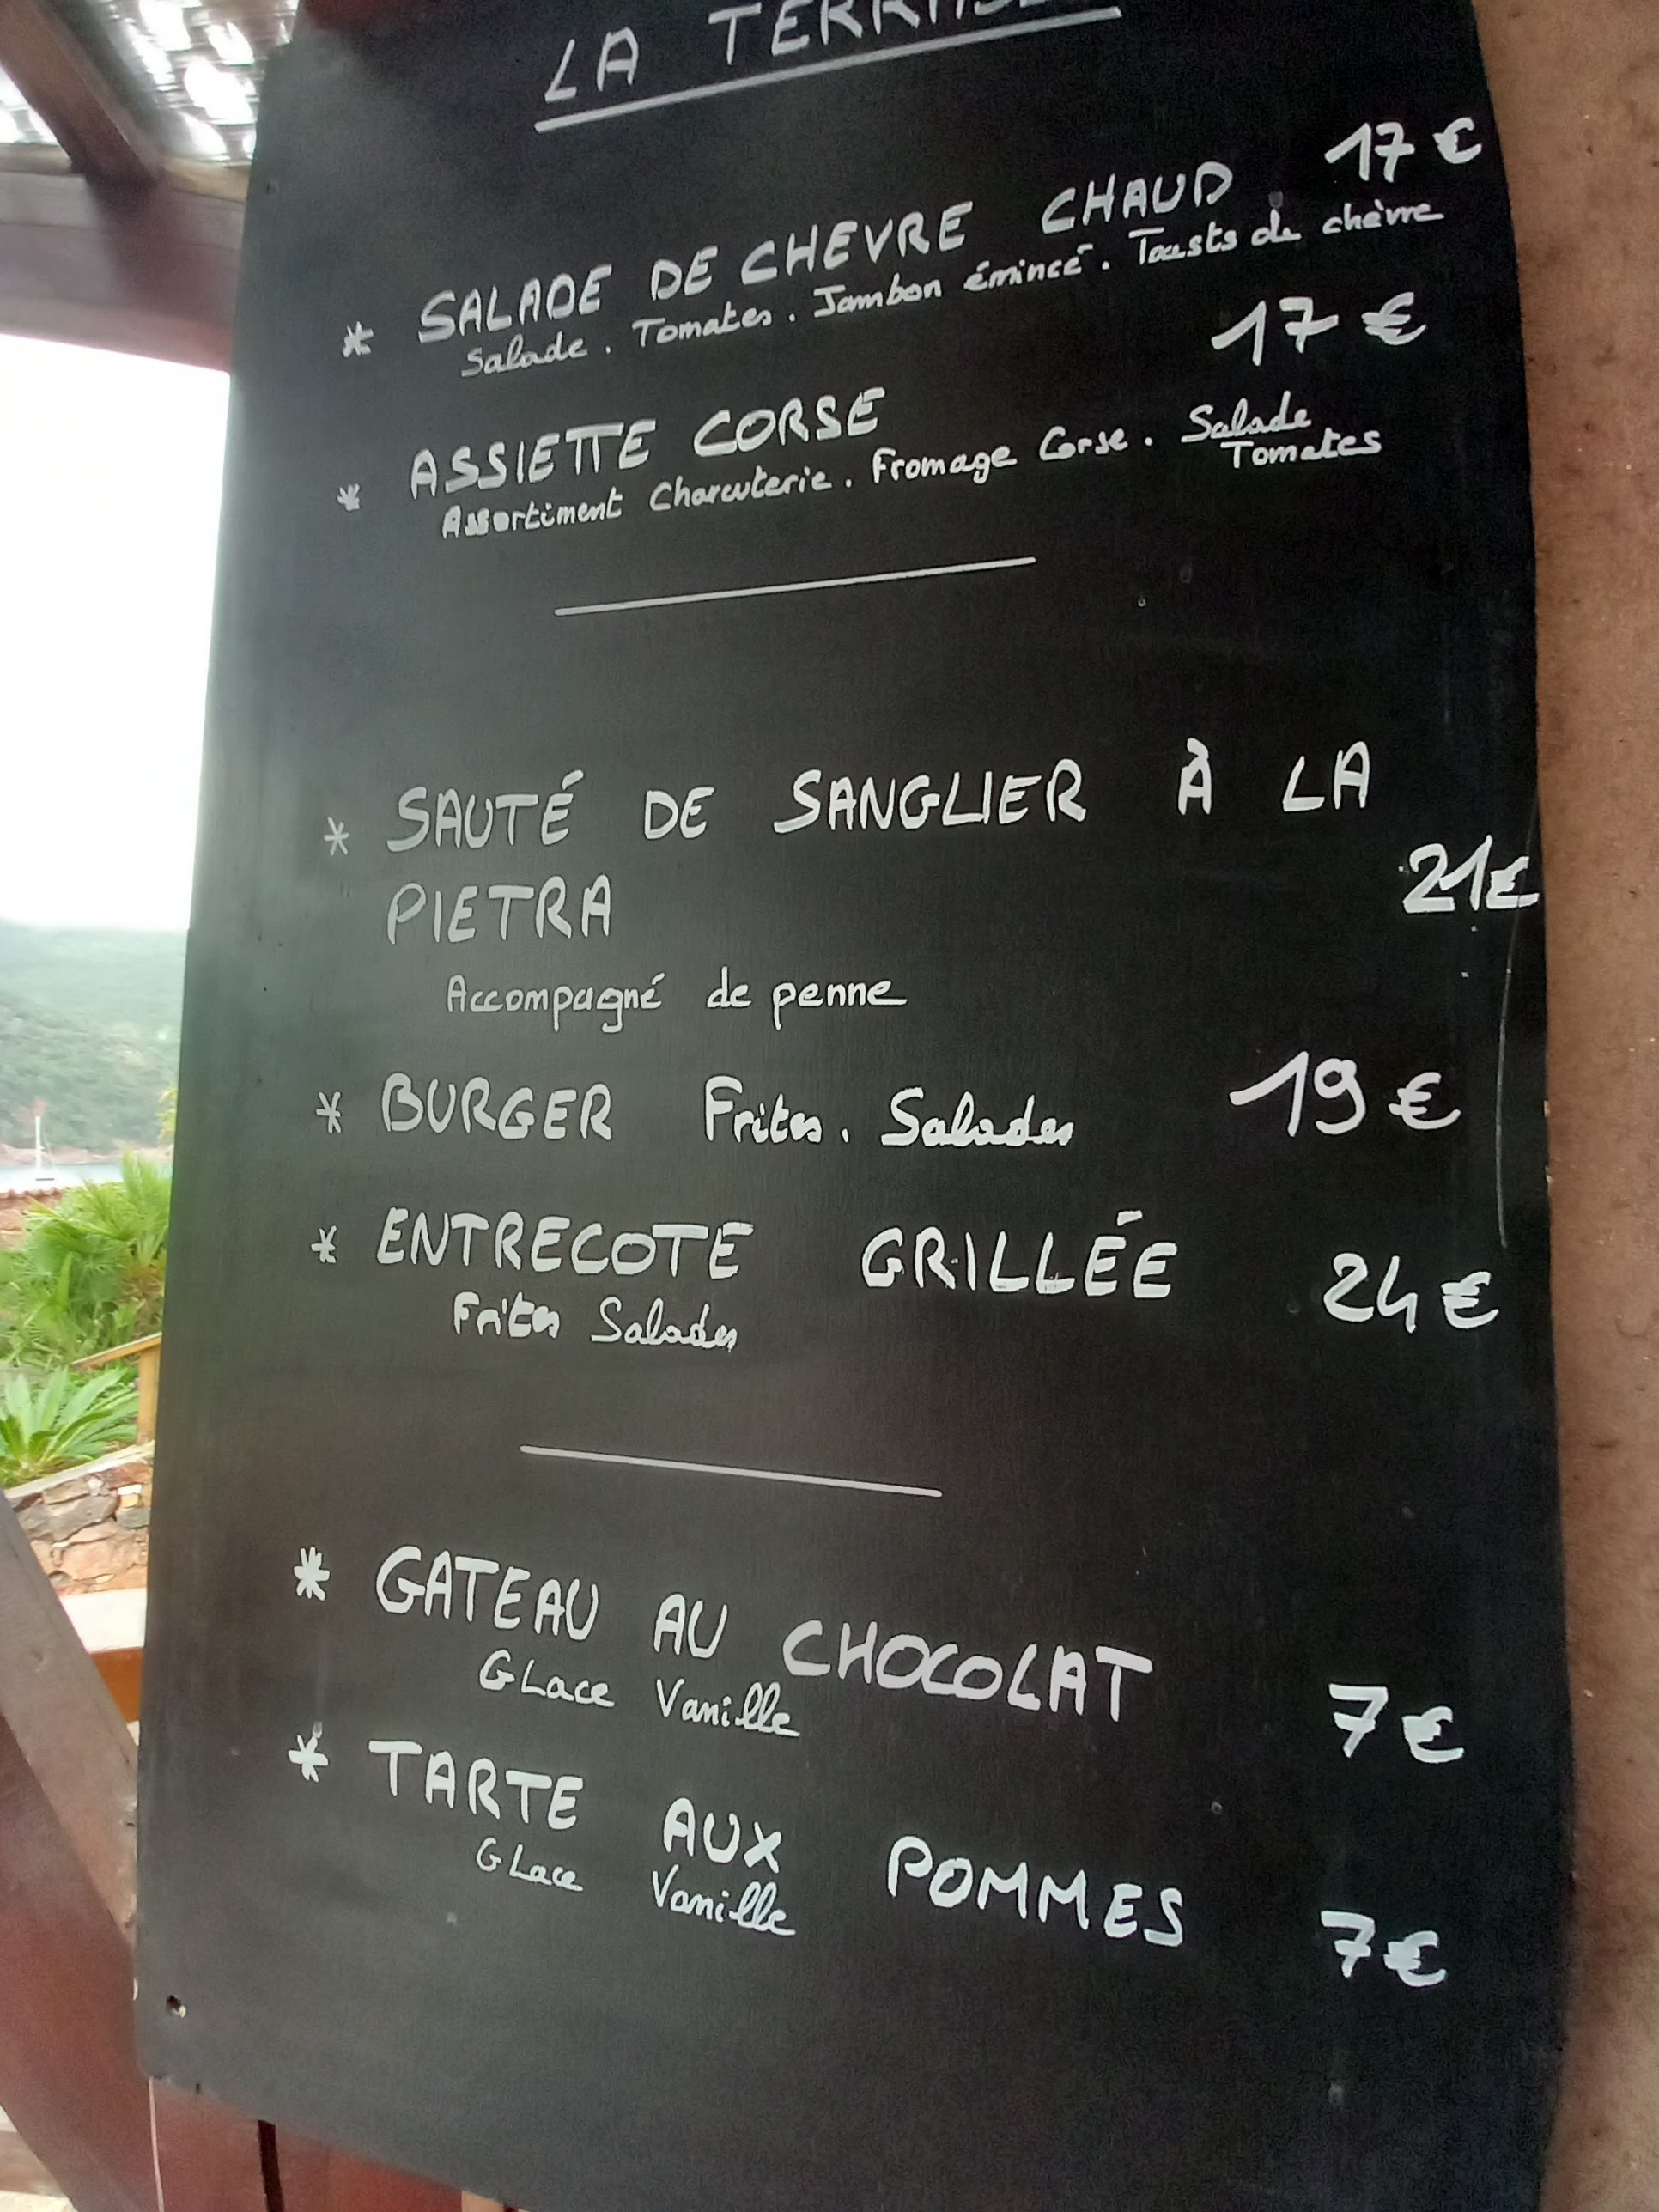 LA TERRASSE
* SALADE DE CHEVRE CHAUD 17€
Salade. Tomates. Jambon émincé. Toasts de chèvre
* ASSIETTE CORSE 17€
Assortiment Charcuterie. Fromage Corse. Salade
Tomates
* SAUTÉ DE SANGLIER À LA
PIETRA 21€
Accompagné de penne
* BURGER Frites. Salades 19€
* ENTRECOTE GRILLÉE 24€
Frites Salades
* GATEAU AU CHOCOLAT 7€
GLace Vanille
* TARTE AUX POMMES 7€
GLace Vanille